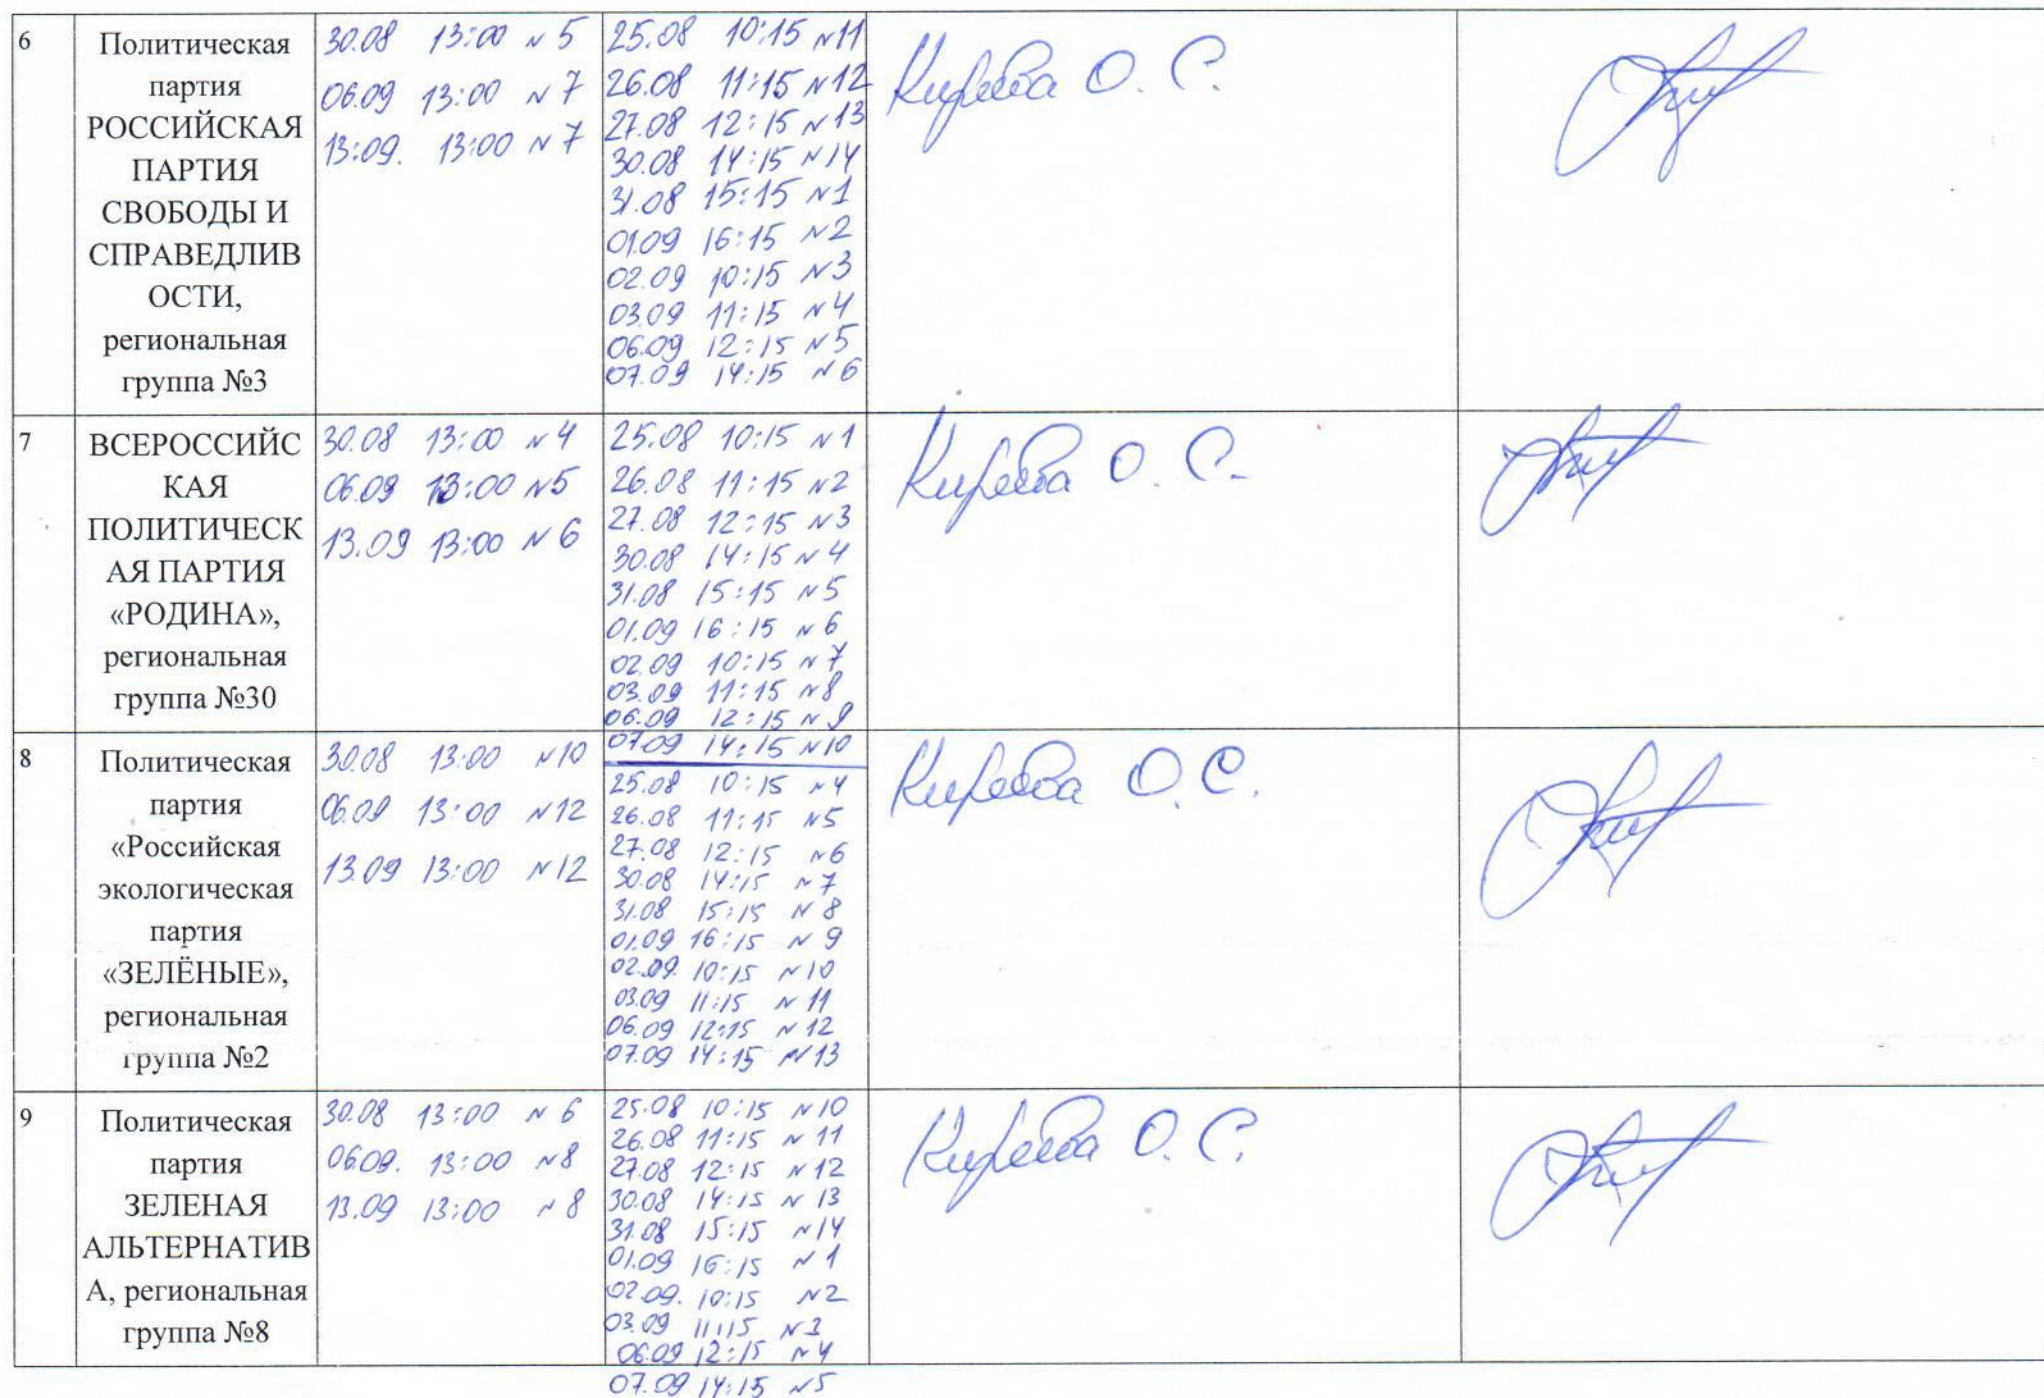 6
Политическая
партия
РОССИЙСКАЯ
ПАРТИЯ
СВОБОДЫ И
СПРАВЕДЛИВ
ОСТИ,
региональная
группа №3
30.08 13:00 N5
06.09 13:00 N7
13:09. 13:00 N7
25.08 10:15 N11
26.08 11:15 N12
27.08 12:15 N13
30.08 14:15 N14
31.08 15:15 N1
01.09 16:15 N2
02.09 10:15 N3
03.09 11:15 N4
06.09 12:15 N5
07.09 14:15 N6
Киреева О. С.
7
ВСЕРОССИЙС
КАЯ
ПОЛИТИЧЕСК
АЯ ПАРТИЯ
«РОДИНА»,
региональная
группа №30
30.08 13:00 N4
06.09 13:00 N5
13.09 13:00 N6
25.08 10:15 N1
26.08 11:15 N2
27.08 12:15 N3
30.08 14:15 N4
31.08 15:15 N5
01.09 16:15 N6
02.09 10:15 N7
03.09 11:15 N8
06.09 12:15 N9
07.09 14:15 N10
Киреева О. С.
8
Политическая
партия
«Российская
экологическая
партия
«ЗЕЛЁНЫЕ»,
региональная
группа №2
30.08 13:00 N10
06.09 13:00 N12
13.09 13:00 N12
25.08 10:15 N4
26.08 11:15 N5
27.08 12:15 N6
30.08 14:15 N7
31.08 15:15 N8
01.09 16:15 N9
02.09. 10:15 N10
03.09 11:15 N11
06.09 12:15 N12
07.09 14:15 N13
Киреева О. С.
9
Политическая
партия
ЗЕЛЕНАЯ
АЛЬТЕРНАТИВ
А, региональная
группа №8
30.08 13:00 N6
06.09. 13:00 N8
13.09 13:00 N8
25.08 10:15 N10
26.08 11:15 N11
27.08 12:15 N12
30.08 14:15 N13
31.08 15:15 N14
01.09 16:15 N1
02.09. 10:15 N2
03.09 11:15 N3
06.09 12:15 N4
07.09 14:15 N5
Киреева О. С.